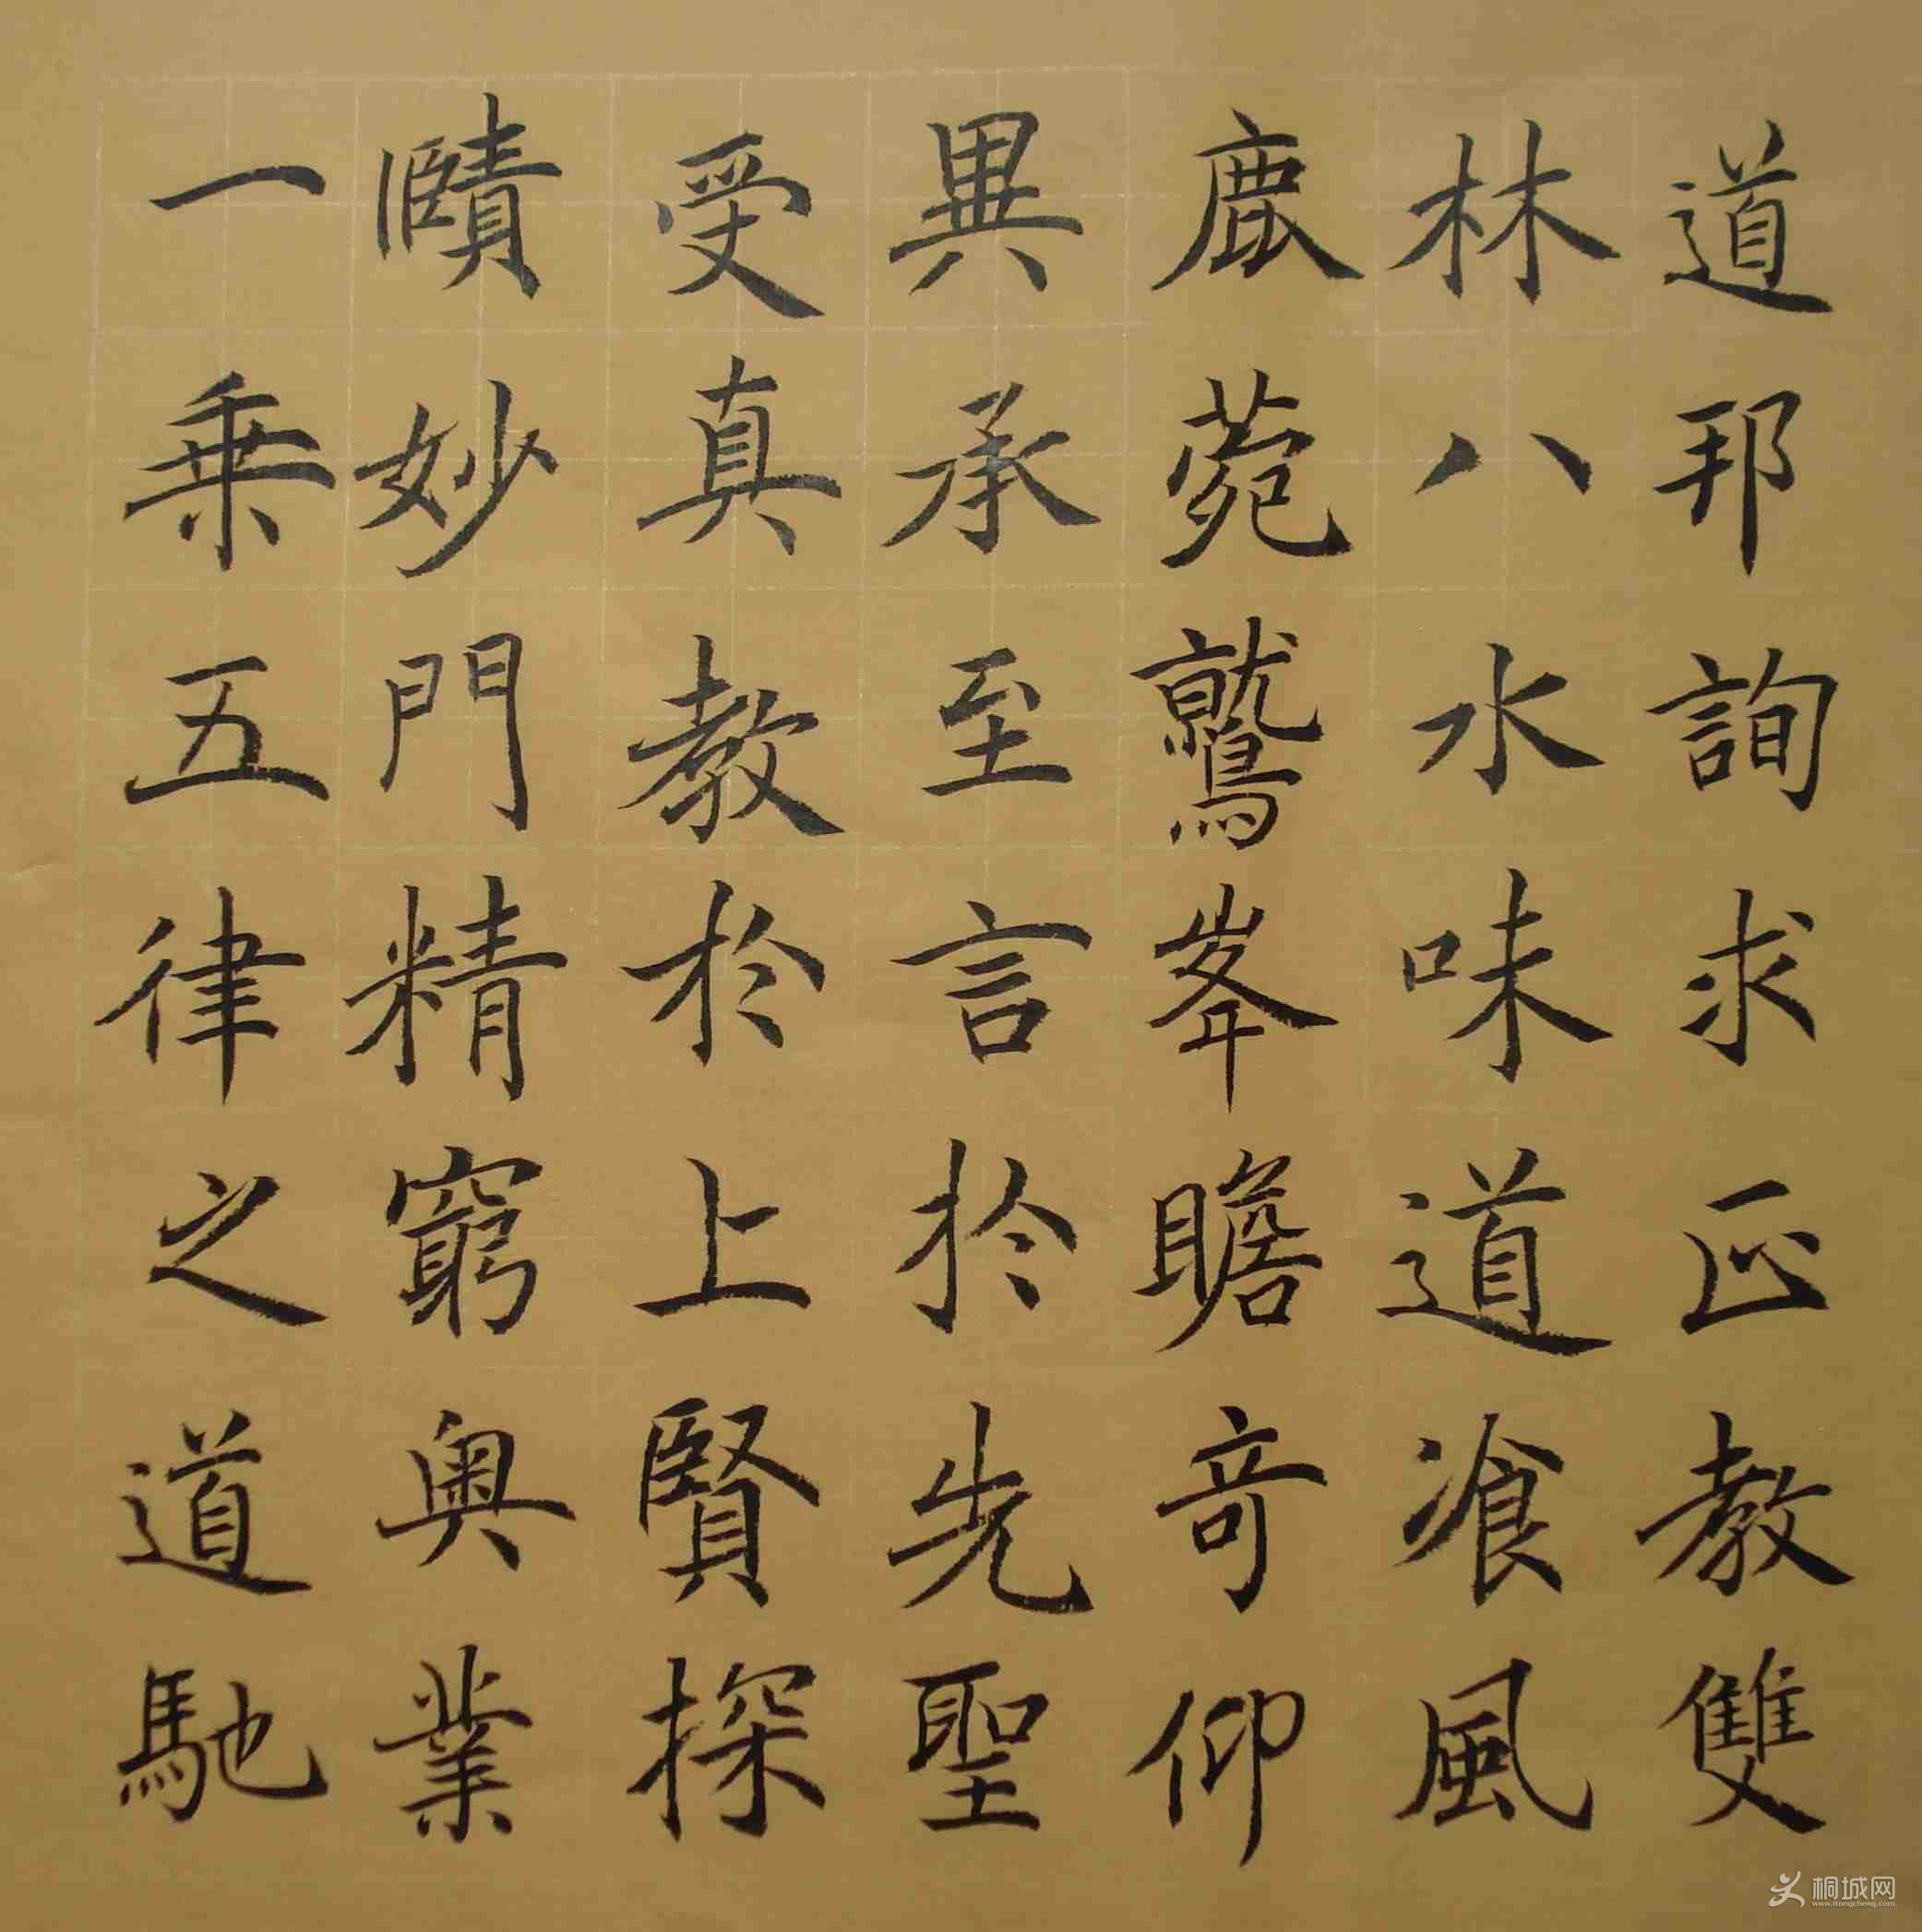 道邦詢求正教雙
林八水味道飡風
鹿菀鷲峯瞻奇仰
異承至言於先聖
受真教於上賢探
賾妙門精窮奧業
一乘五律之道馳
桐城网
www.itongcheng.com